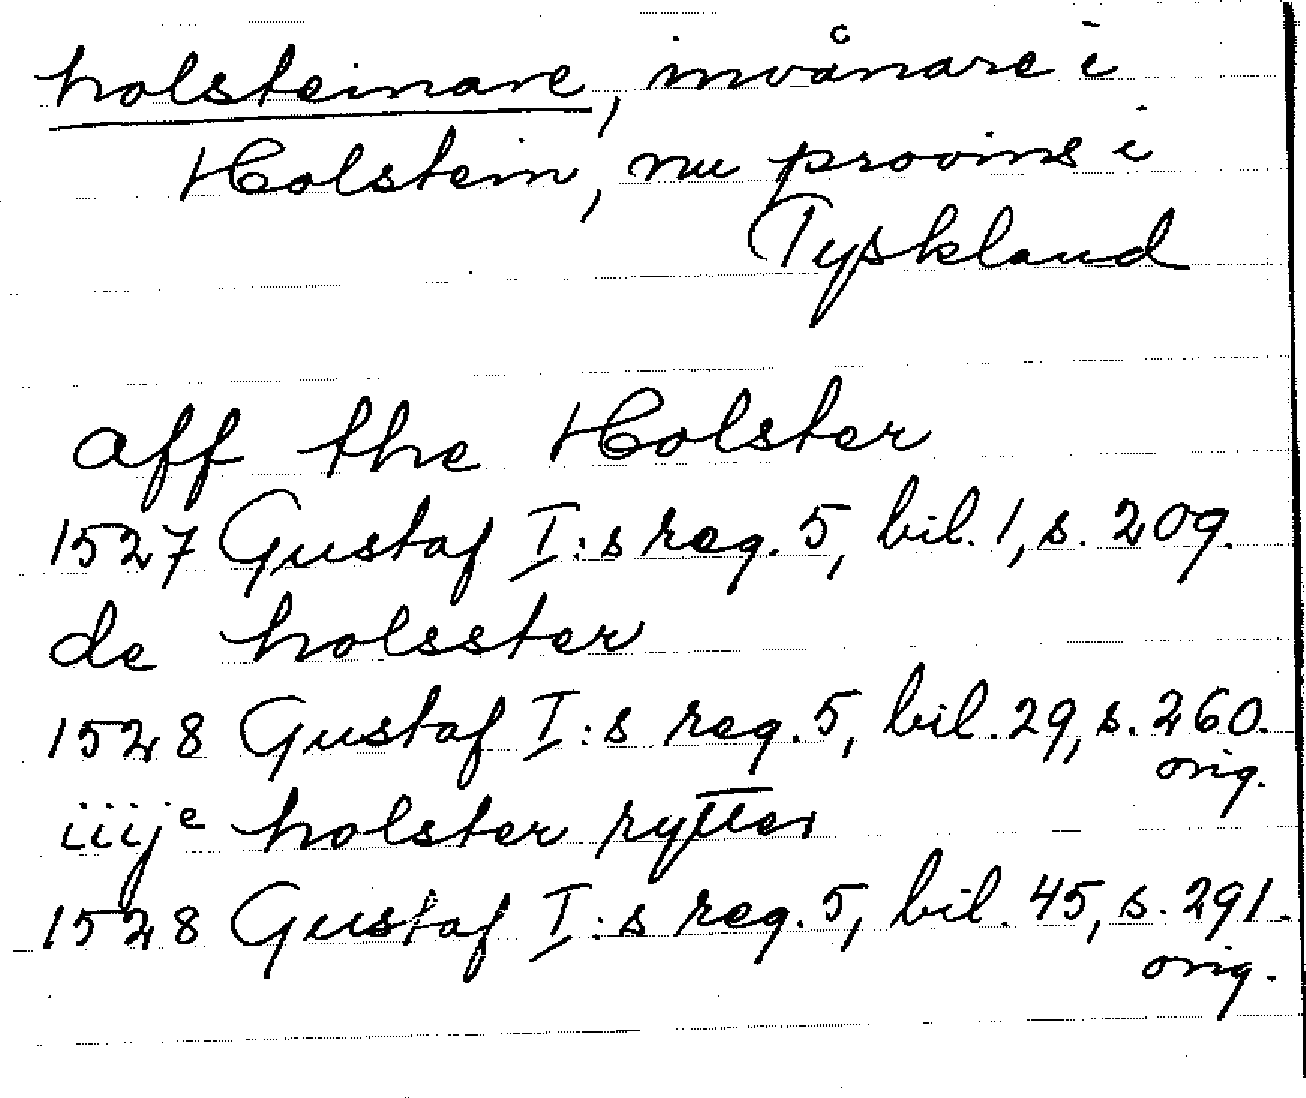 holsteinare, invånare i
Holstein, nu provins i
Tyskland
aff the Holster
1527 Gustaf I:s reg. 5, bil. 1, s. 209.
de holsster
1528 Gustaf I:s reg. 5, bil. 29, s. 260.
orig.
iiijᵉ holster rytter
1528 Gustaf I:s reg. 5, bil. 45, s. 291.
orig.